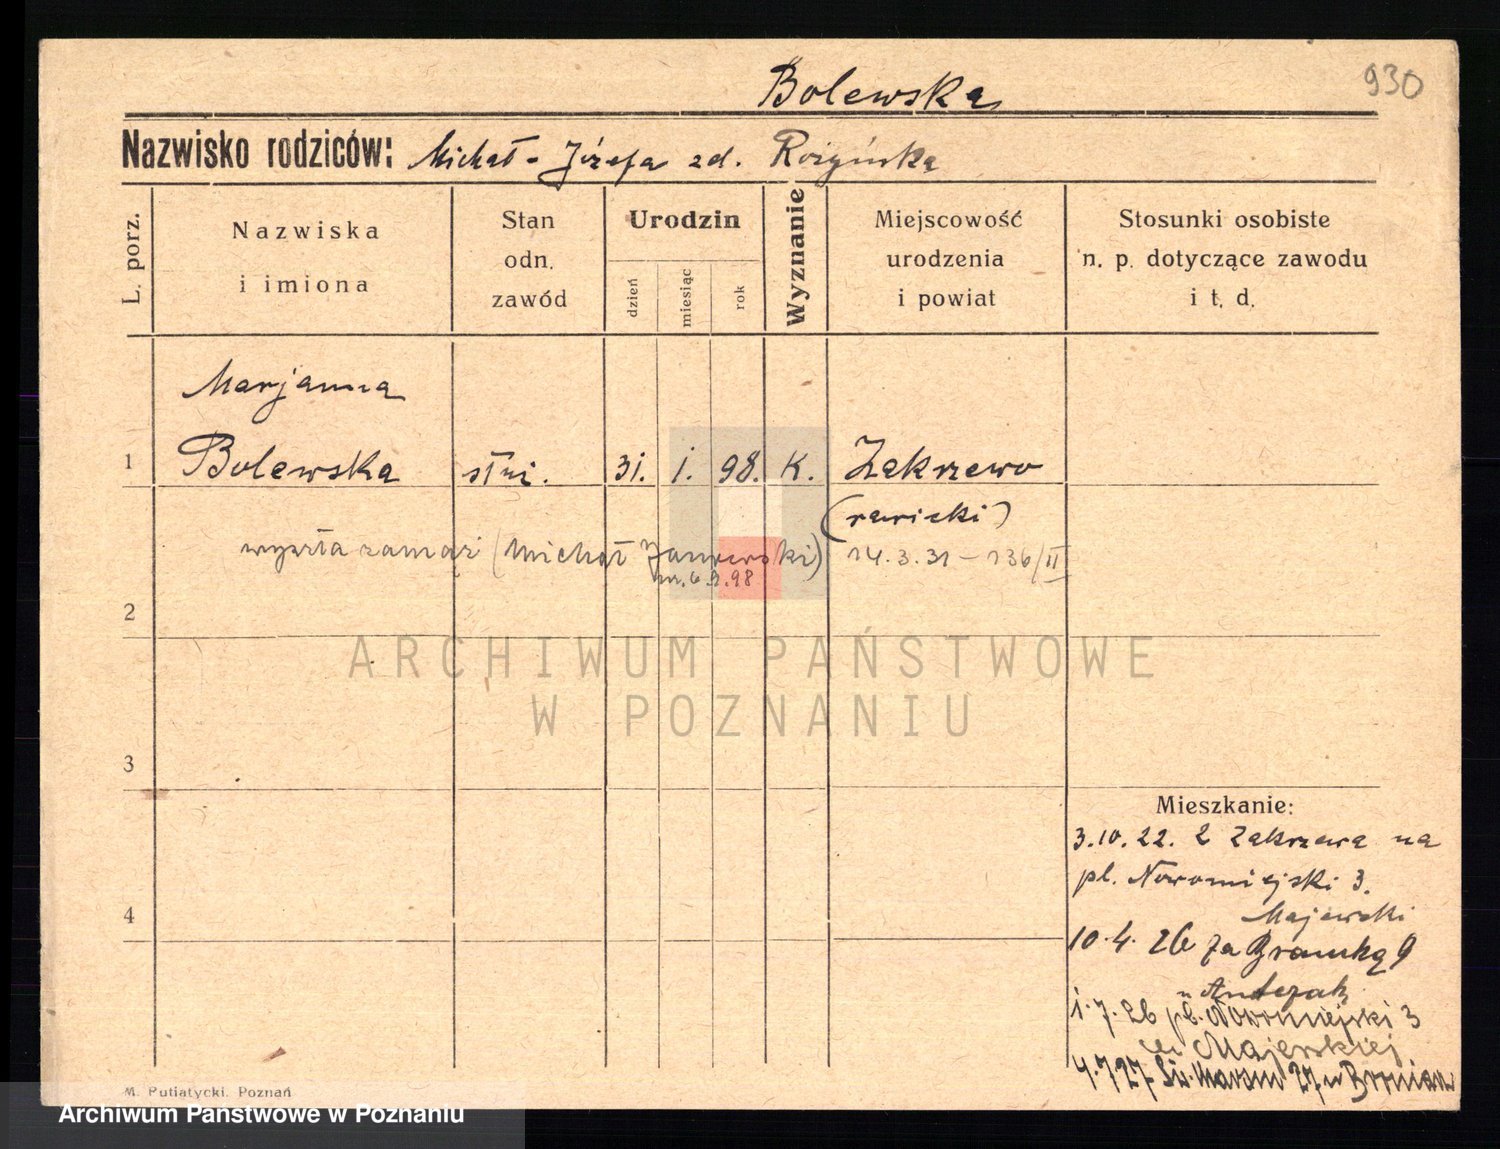 930
Bolewska
Nazwisko rodziców: Michał - Józefa zd. Rożyńska
L. porz.
Nazwiska i imiona
Stan odn. zawód
Urodzin
dzień
miesiąc
rok
Wyznanie
Miejscowość urodzenia i powiat
Stosunki osobiste n. p. dotyczące zawodu i t. d.
Marjanna
1 Bolewska służ. 31. 1. 98. K. Zakrzewo
(rawicki)
wyszła zamąż (Michał 14.3.31 - 136/II
ur. 6.9.98
2
ARCHIWUM PAŃSTWOWE
W POZNANIU
3
Mieszkanie:
3.10.22. z Zakrzewa na
pl. Nowomiejski 3.
Majewski
4
10.4.26 Za Bramką 9
u Antczak
1.7.26 pl. Nowomiejski 3
u Majewskiej
4.7.27 Św. Marcin 27 u
M. Putiatycki. Poznań
Archiwum Państwowe w Poznaniu